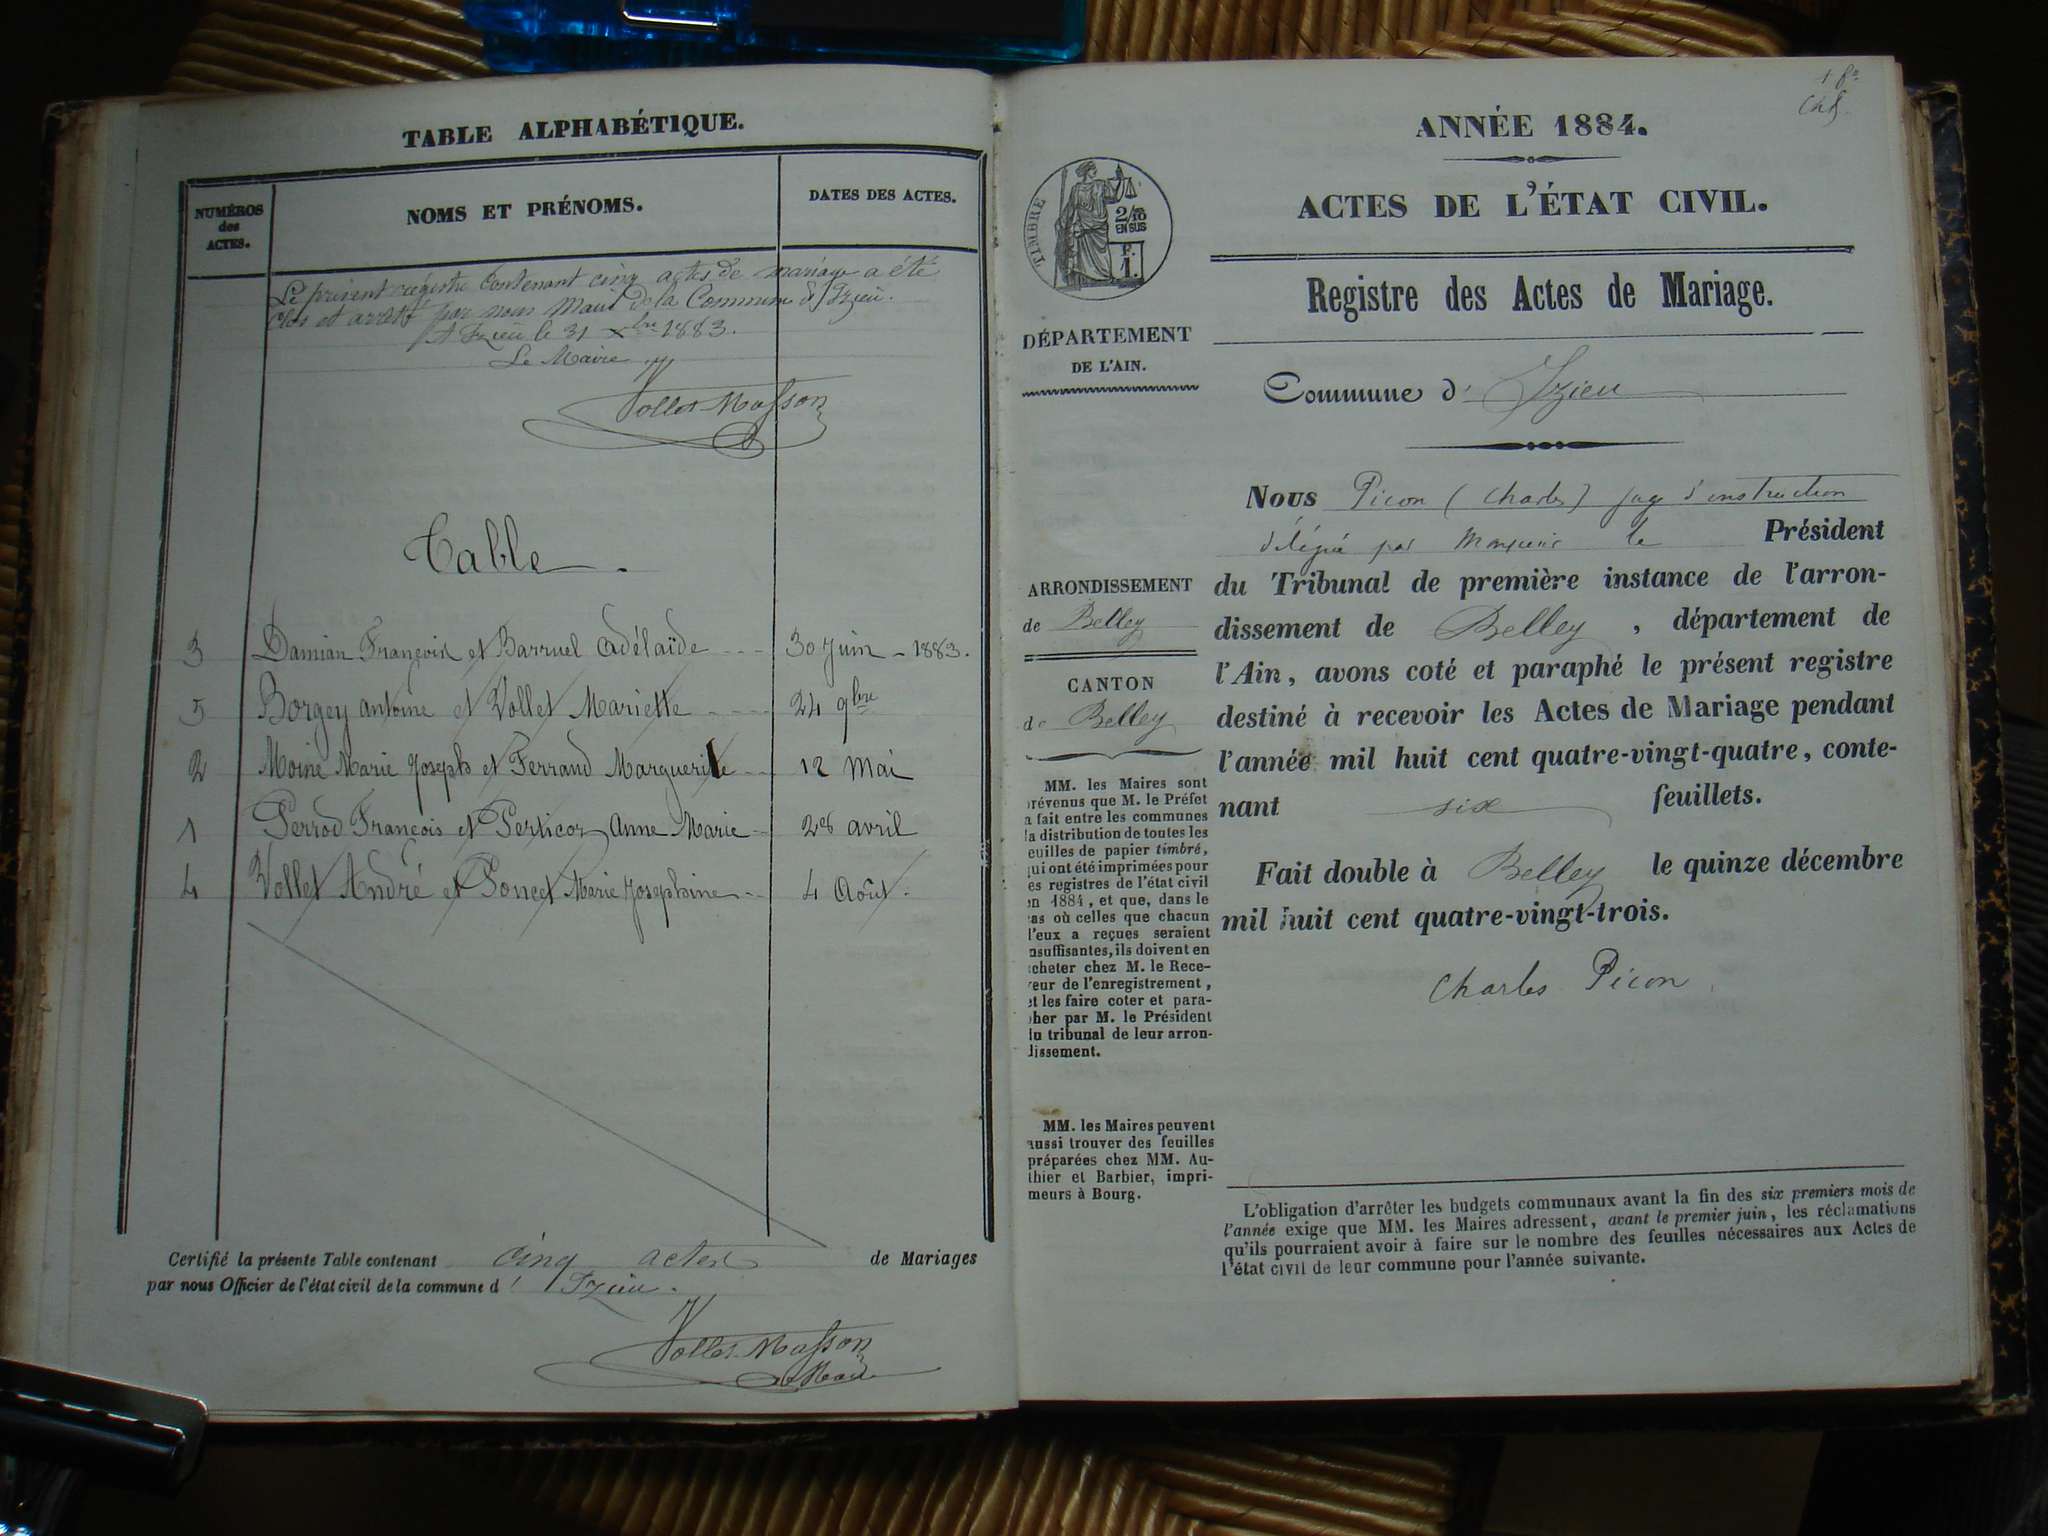 TABLE ALPHABÉTIQUE.
NUMÉROS
des
ACTES.
NOMS ET PRÉNOMS.
DATES DES ACTES.
Le présent régistre contenant cinq actes de mariage a été
Clos et arrêté par nous Maire de la Commune d'Izieu.
A Izieu le 31 Xbre 1883.
Le Maire
Vollet Masson
Table.
3 Damian François et Barruel Adélaïde 30 Juin - 1883.
5 Borgey antoine et Vollet Mariette 24 9bre
2 Moine Marie Joseph et Ferrand Marguerite 12 Mai
1 Perrod François et Perticoz Anne Marie 28 avril
4 Vollet André et Poncet Marie Josephine 4 Août.
Certifié la présente Table contenant cinq actes de Mariages
par nous Officier de l'état civil de la commune d' Izieu.
Vollet Masson
ANNÉE 1884.
ACTES DE L'ÉTAT CIVIL.
TIMBRE
2/10
EN SUS
F.
1.
Registre des Actes de Mariage.
DÉPARTEMENT
DE L'AIN.
Commune d' Izieu
Nous Picon (Charles) juge d'instruction
délégué par Monsieur le Président
du Tribunal de première instance de l'arron-
dissement de Belley, département de
l'Ain, avons coté et paraphé le présent registre
destiné à recevoir les Actes de Mariage pendant
l'année mil huit cent quatre-vingt-quatre, conte-
nant six feuillets.
Fait double à Belley le quinze décembre
mil huit cent quatre-vingt-trois.
Charles Picon
ARRONDISSEMENT
de Belley
CANTON
de Belley
MM. les Maires sont
prévenus que M. le Préfet
a fait entre les communes
la distribution de toutes les
feuilles de papier timbré,
qui ont été imprimées pour
les registres de l'état civil
en 1884, et que, dans le
cas où celles que chacun
d'eux a reçues seraient
insuffisantes, ils doivent en
acheter chez M. le Rece-
veur de l'enregistrement,
et les faire coter et para-
pher par M. le Président
du tribunal de leur arron-
dissement.
MM. les Maires peuvent
aussi trouver des feuilles
préparées chez MM. Au-
thier et Barbier, impri-
meurs à Bourg.
L'obligation d'arrêter les budgets communaux avant la fin des six premiers mois de
l'année exige que MM. les Maires adressent, avant le premier juin, les réclamations
qu'ils pourraient avoir à faire sur le nombre des feuilles nécessaires aux Actes de
l'état civil de leur commune pour l'année suivante.